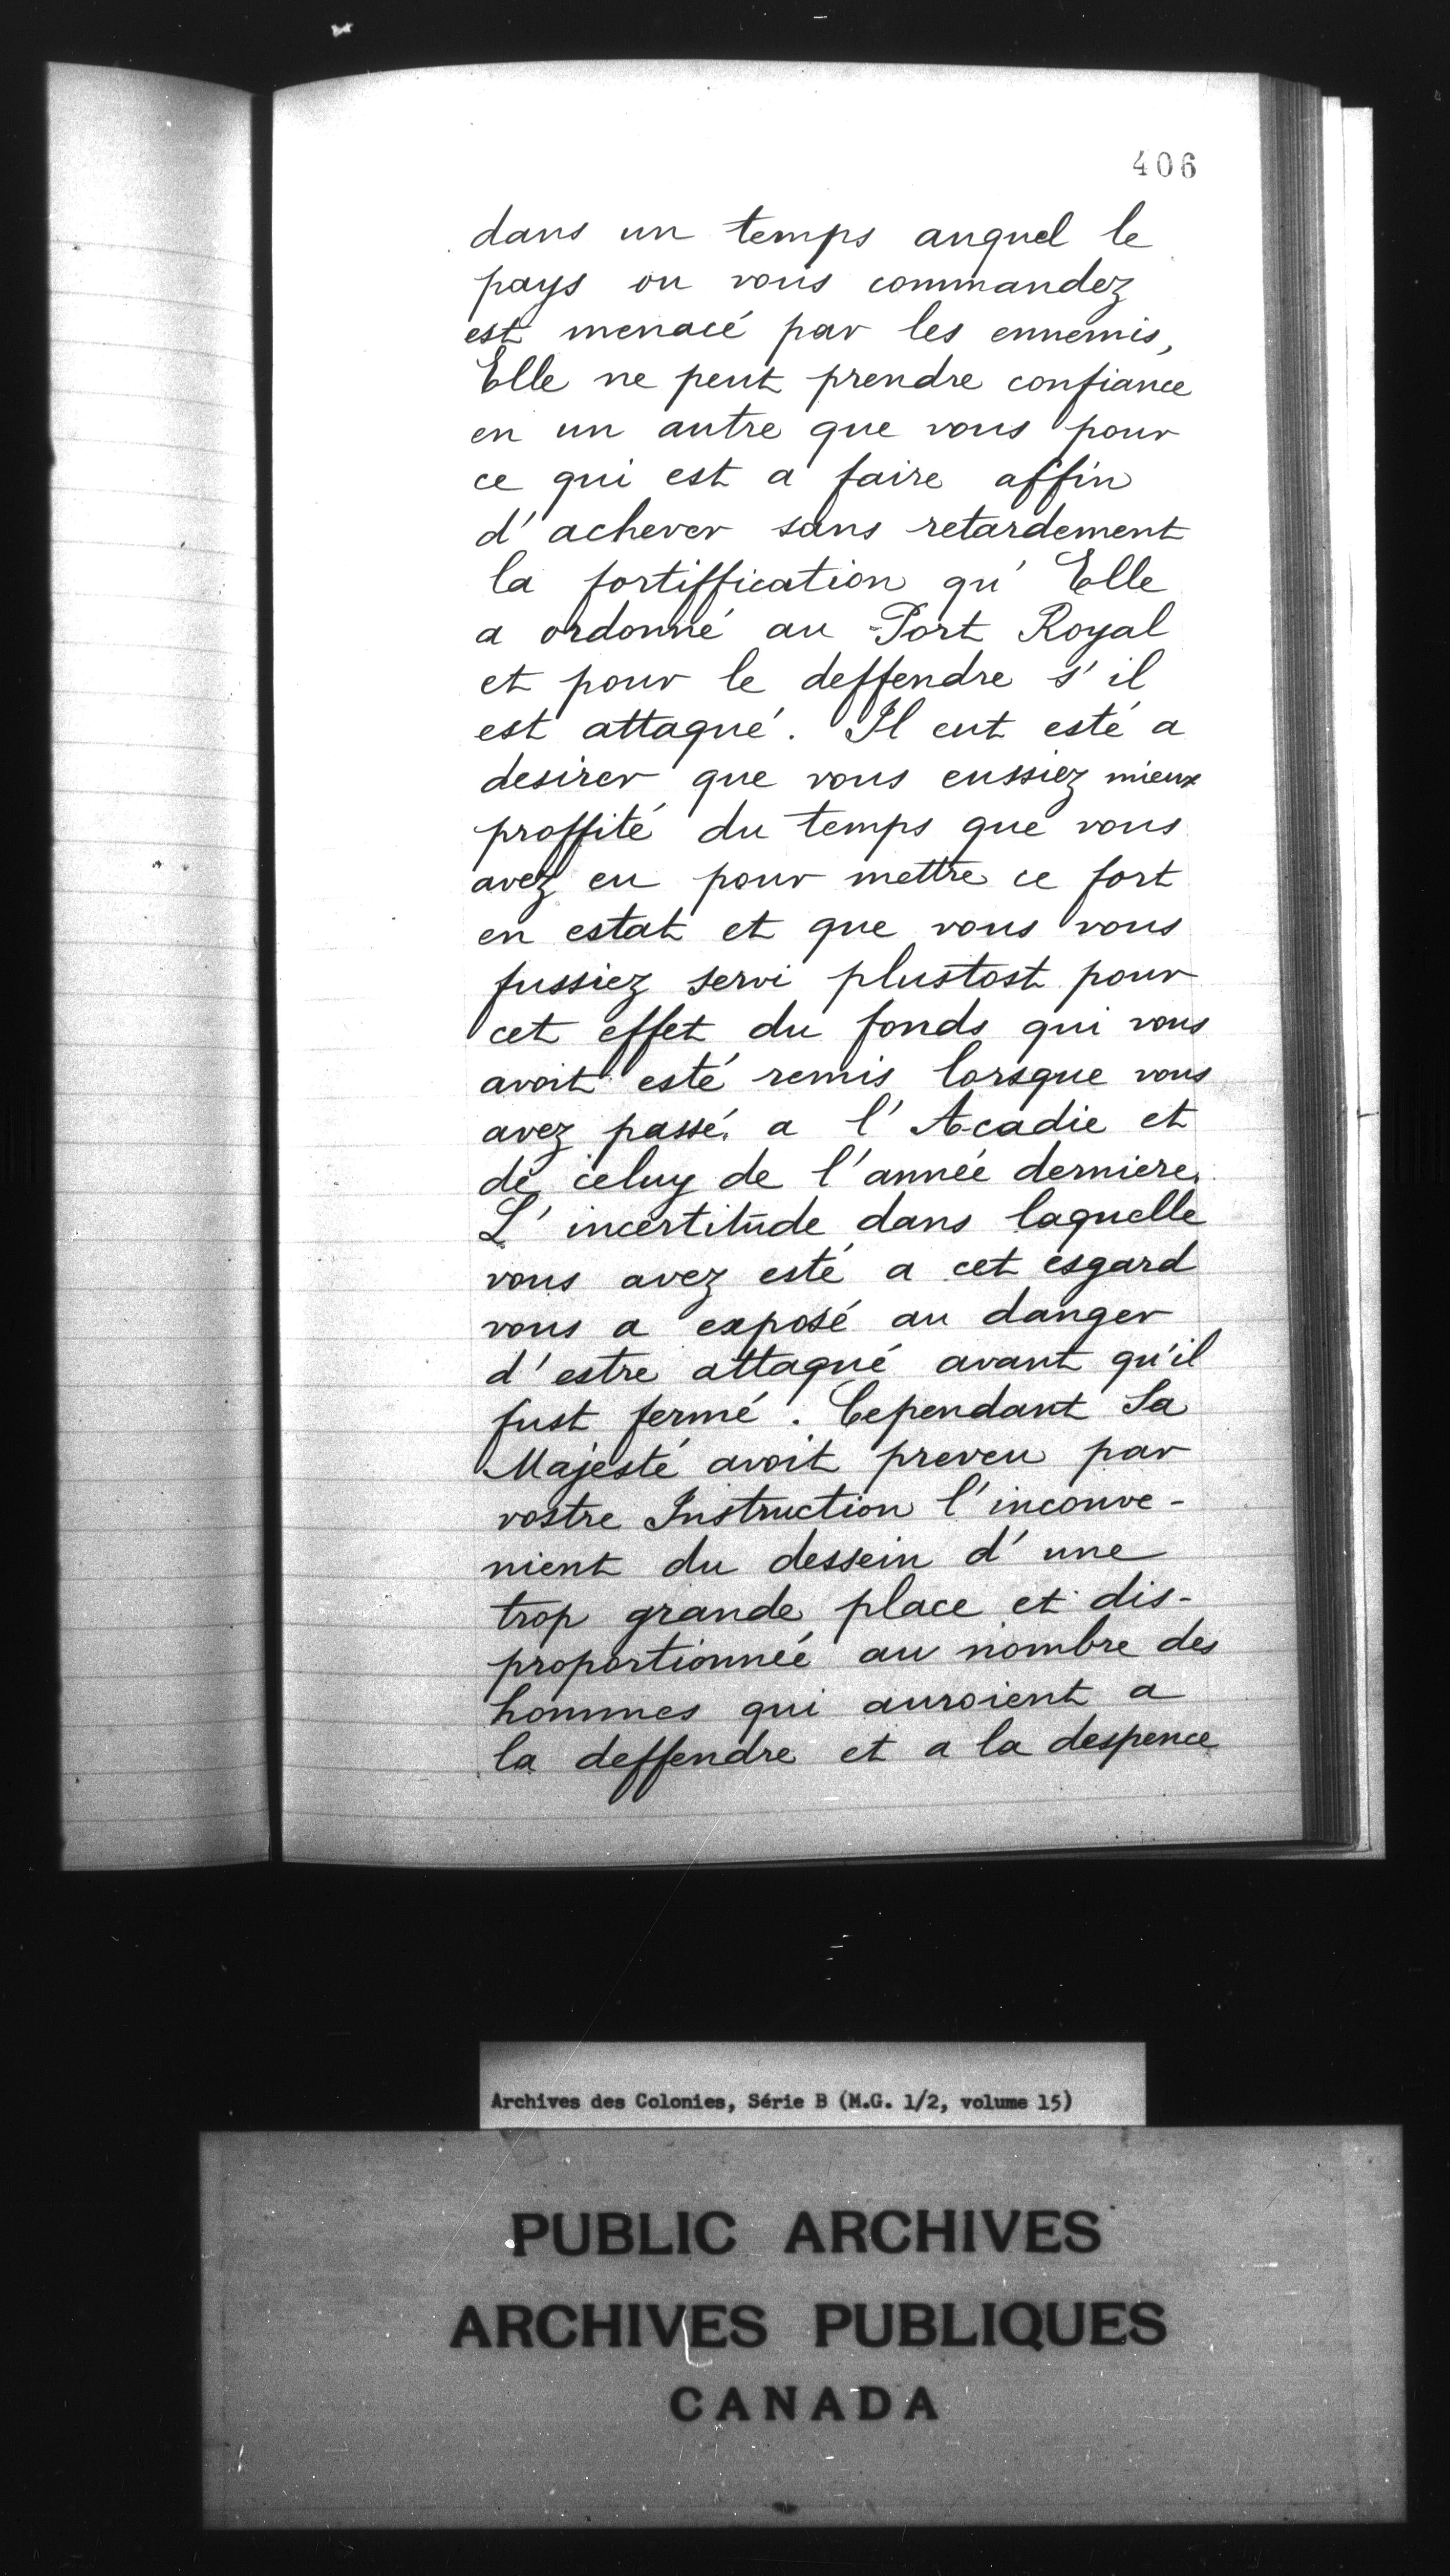 406
dans un temps auquel le
pays ou vous commandez
est menacé par les ennemis,
Elle ne peut prendre confiance
en un autre que vous pour
ce qui est a faire affin
d'achever sans retardement
la fortiffication qu'Elle
a ordonné au Port Royal
et pour le deffendre s'il
est attaqué. Il eut esté a
desirer que vous eussiez mieux
proffité du temps que vous
avez eu pour mettre ce fort
en estat et que vous vous
fussiez servi plustost pour
cet effet du fonds qui vous
avoit esté remis lorsque vous
avez passé a l'Acadie et
de celuy de l'année derniere.
L'incertitude dans laquelle
vous avez esté a cet esgard
vous a exposé au danger
d'estre attaqué avant qu'il
fust fermé. Cependant Sa
Majesté avoit preveu par
vostre Instruction l'inconve-
nient du dessein d'une
trop grande place et dis-
proportionnée au nombre des
hommes qui auroient a
la deffendre et a la despence
Archives des Colonies, Série B (M.G. 1/2, volume 15)
PUBLIC ARCHIVES
ARCHIVES PUBLIQUES
CANADA